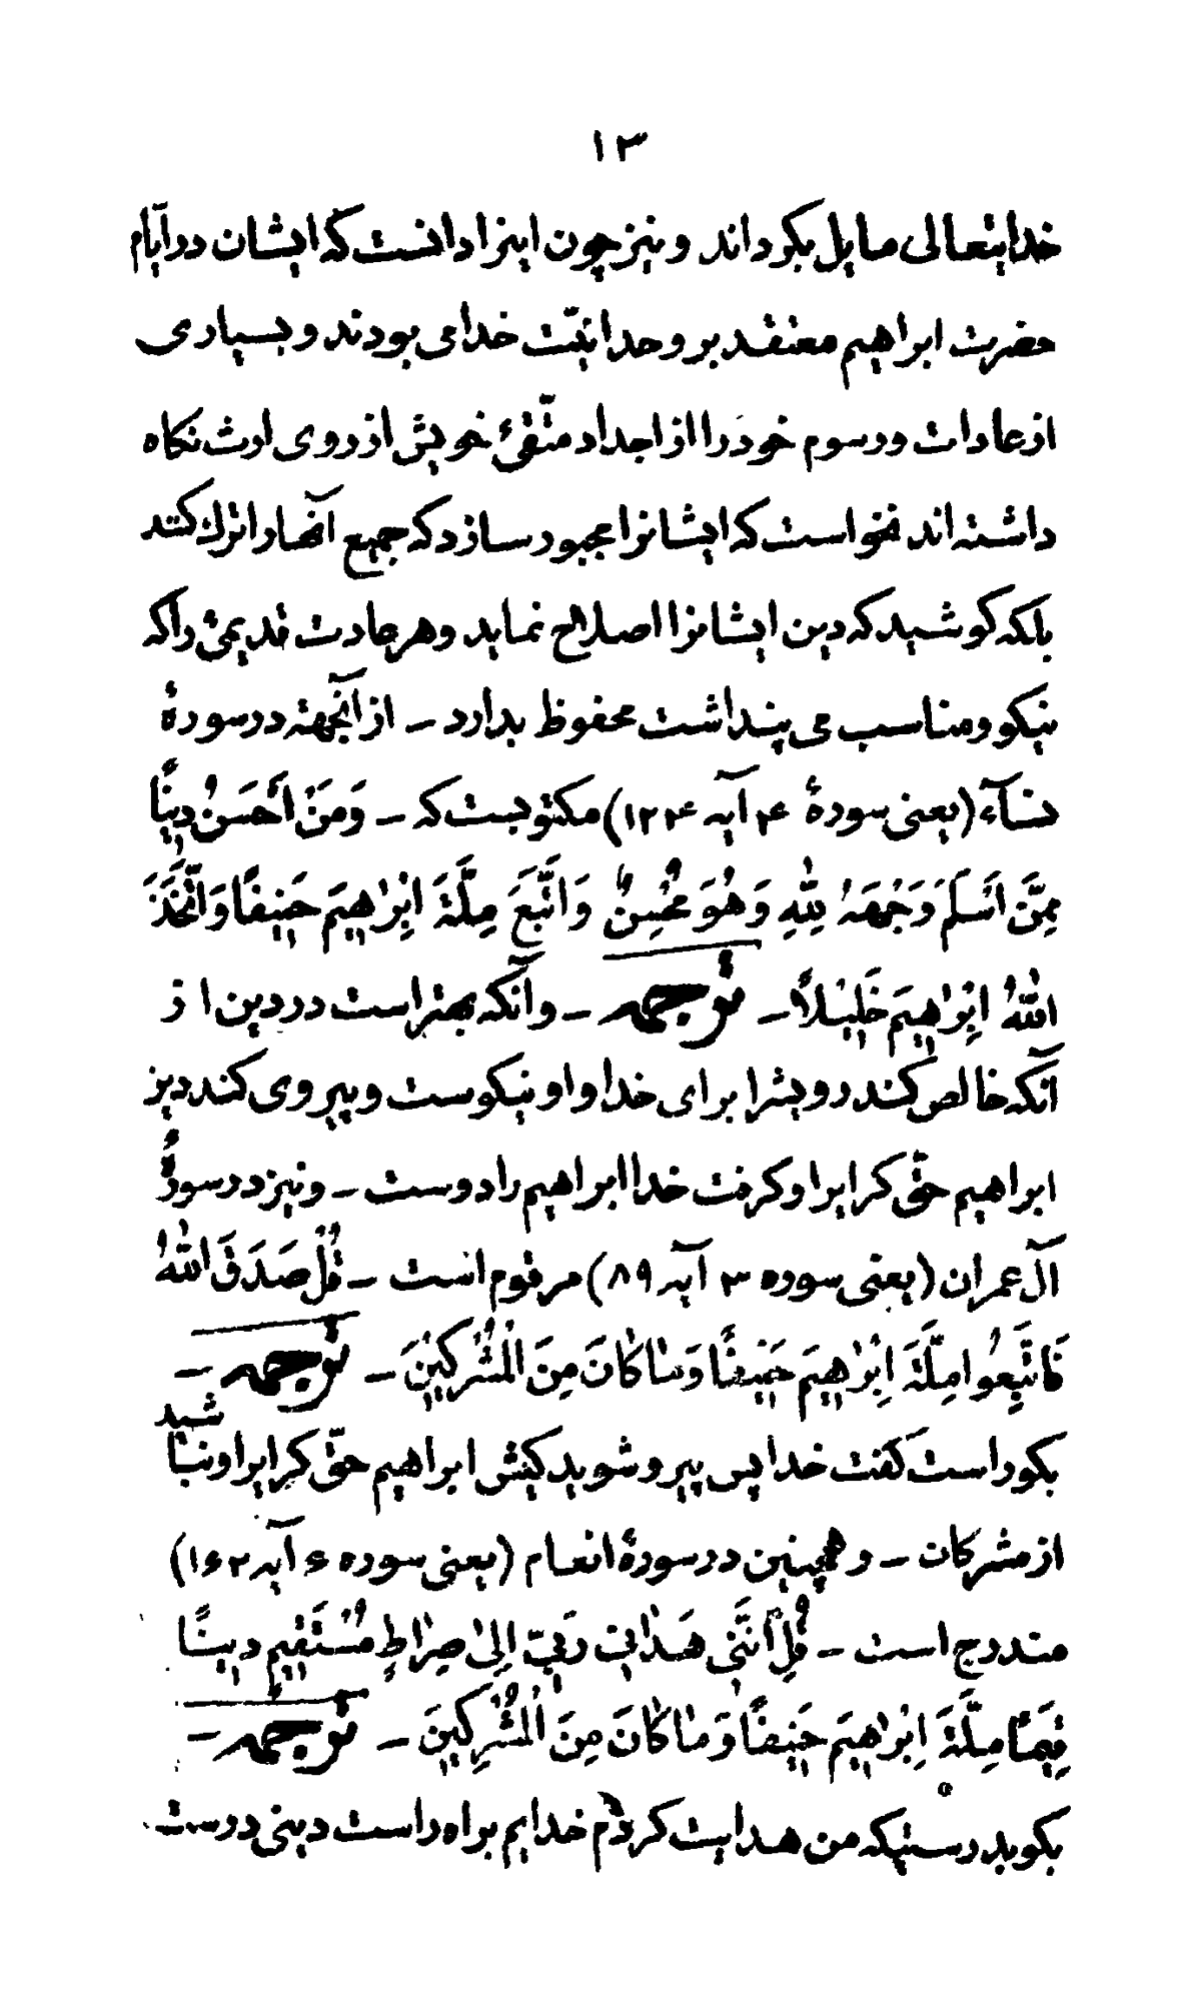 ۱۳
خدایتعالی مایل بگرداند و نیز چون اینرا دانست که ایشان در ایّام
حضرت ابراهیم معتقد بر وحدانیّت خدا می بودند و بسیاری
از عادات و رسوم خود را از اجداد متّقیٔ خویش از روی ارث نگاه
داشته اند نخواست که ایشانرا مجبور سازد که جمیع آنها را ترک کنند
بلکه کوشید که دین ایشانرا اصلاح نماید و هر عادت قدیمیٔ را که
نیکو و مناسب می پنداشت محفوظ بدارد – از آنجهة در سورهٔ
نسآء (یعنی سورهٔ ۴ آیه ۱۲۴) مکتوبست که – وَمَنْ أَحْسَنُ دِينًا
مِمَّنْ أَسْلَمَ وَجْهَهُ لِلّٰهِ وَهُوَ مُحْسِنٌ وَاتَّبَعَ مِلَّةَ اِبْرٰهِيمَ حَنِيفًا وَاتَّخَذَ
اللّٰهُ اِبْرٰهِيمَ خَلِيْلاً – ترجمه – و آنکه بهتر است در دین از
آنکه خالص کند رویشرا برای خدا و او نیکوست و پیروی کند دین
ابراهیم حقّ گرایرا و گرفت خدا ابراهیم را دوست – و نیز در سورهٔ
آل عمران (یعنی سوره ۳ آیه ۸۹) مرقوم است – قُلْ صَدَقَ اللّٰهُ
فَاتَّبِعُوا مِلَّةَ اِبْرٰهِيمَ حَنِيفًا وَمٰا كٰانَ مِنَ الْمُشْرِكِيْنَ – ترجمه –
بگو راست گفت خدا پس پیرو شوید کیش ابراهیم حقّ گرایرا و نبا شید
از مشرکان – و همچنین در سورهٔ انعام (یعنی سوره ۶ آیه ۱۶۲)
مندرج است – قُلْ اِنَّنِی هَدٰانِی رَبِّی اِلیٰ صِرٰاطٍ مُسْتَقِيمٍ دِينًا
قِيَمًا مِلَّةَ اِبْرٰهِيمَ حَنِيفًا وَمٰا كٰانَ مِنَ الْمُشْرِكِينَ – ترجمه –
بگو بدرستیکه من هدایت کردم خدایم براه راست دینی درست